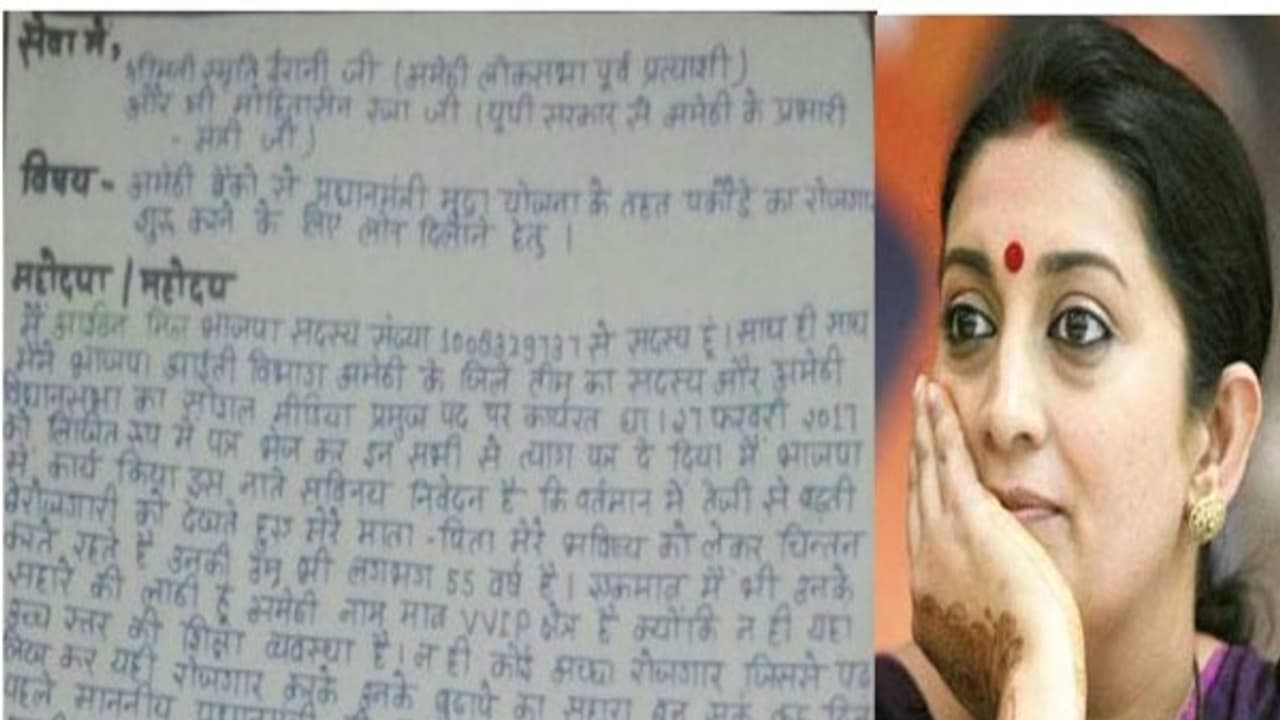 सेवा में,
श्रीमती स्मृति ईरानी जी (अमेठी लोकसभा पूर्व प्रत्याशी)
और श्री मोहसिन रजा जी (यूपी सरकार से अमेठी के प्रभारी
- मंत्री जी)
विषय - अमेठी बैंको से प्रधानमंत्री मुद्रा योजना के तहत पकौड़े का रोजगार
शुरू करने के लिए लोन दिलाने हेतु।
महोदया / महोदय
मैं भाजपा सदस्य संख्या से सदस्य हूं। साथ ही साथ
मैंने भाजपा आईटी विभाग अमेठी के जिले टीम का सदस्य और अमेठी
विधानसभा का सोशल मीडिया प्रमुख पद पर कार्यरत था। 27 फरवरी 2017
को लिखित रूप में पत्र भेज कर इन सभी से त्याग पत्र दे दिया मैं भाजपा
में कार्य किया इस नाते सविनय निवेदन है कि वर्तमान में तेजी से बढ़ती
बेरोजगारी को देखते हुए मेरे माता-पिता मेरे भविष्य को लेकर चिन्तन
करते रहते है उनकी उम्र भी लगभग 55 वर्ष है। एकमात्र मैं भी उनके
सहारे की लाठी हूं अमेठी नाम मात्र VVIP क्षेत्र है क्योंकि न ही यहा
उच्च स्तर की शिक्षा व्यवस्था है। न ही कोई अच्छा रोजगार जिससे पढ़
लिख कर यही रोजगार करके इनके बुढ़ापे का सहारा बन सकूं
पहले माननीय